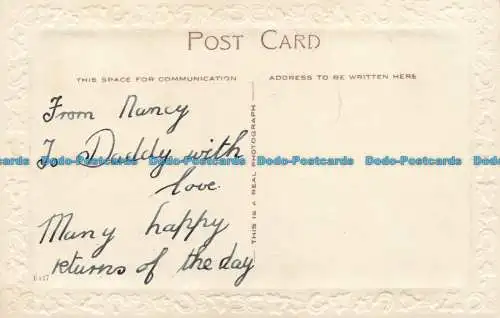 POST CARD
THIS SPACE FOR COMMUNICATION
ADDRESS TO BE WRITTEN HERE
From Nancy
To Daddy with
love.
Many happy
returns of the day
THIS IS A REAL PHOTOGRAPH
Dodo-Postcards Dodo-Postcards Dodo-Postcards Dodo-Postcards Dodo-Postcards